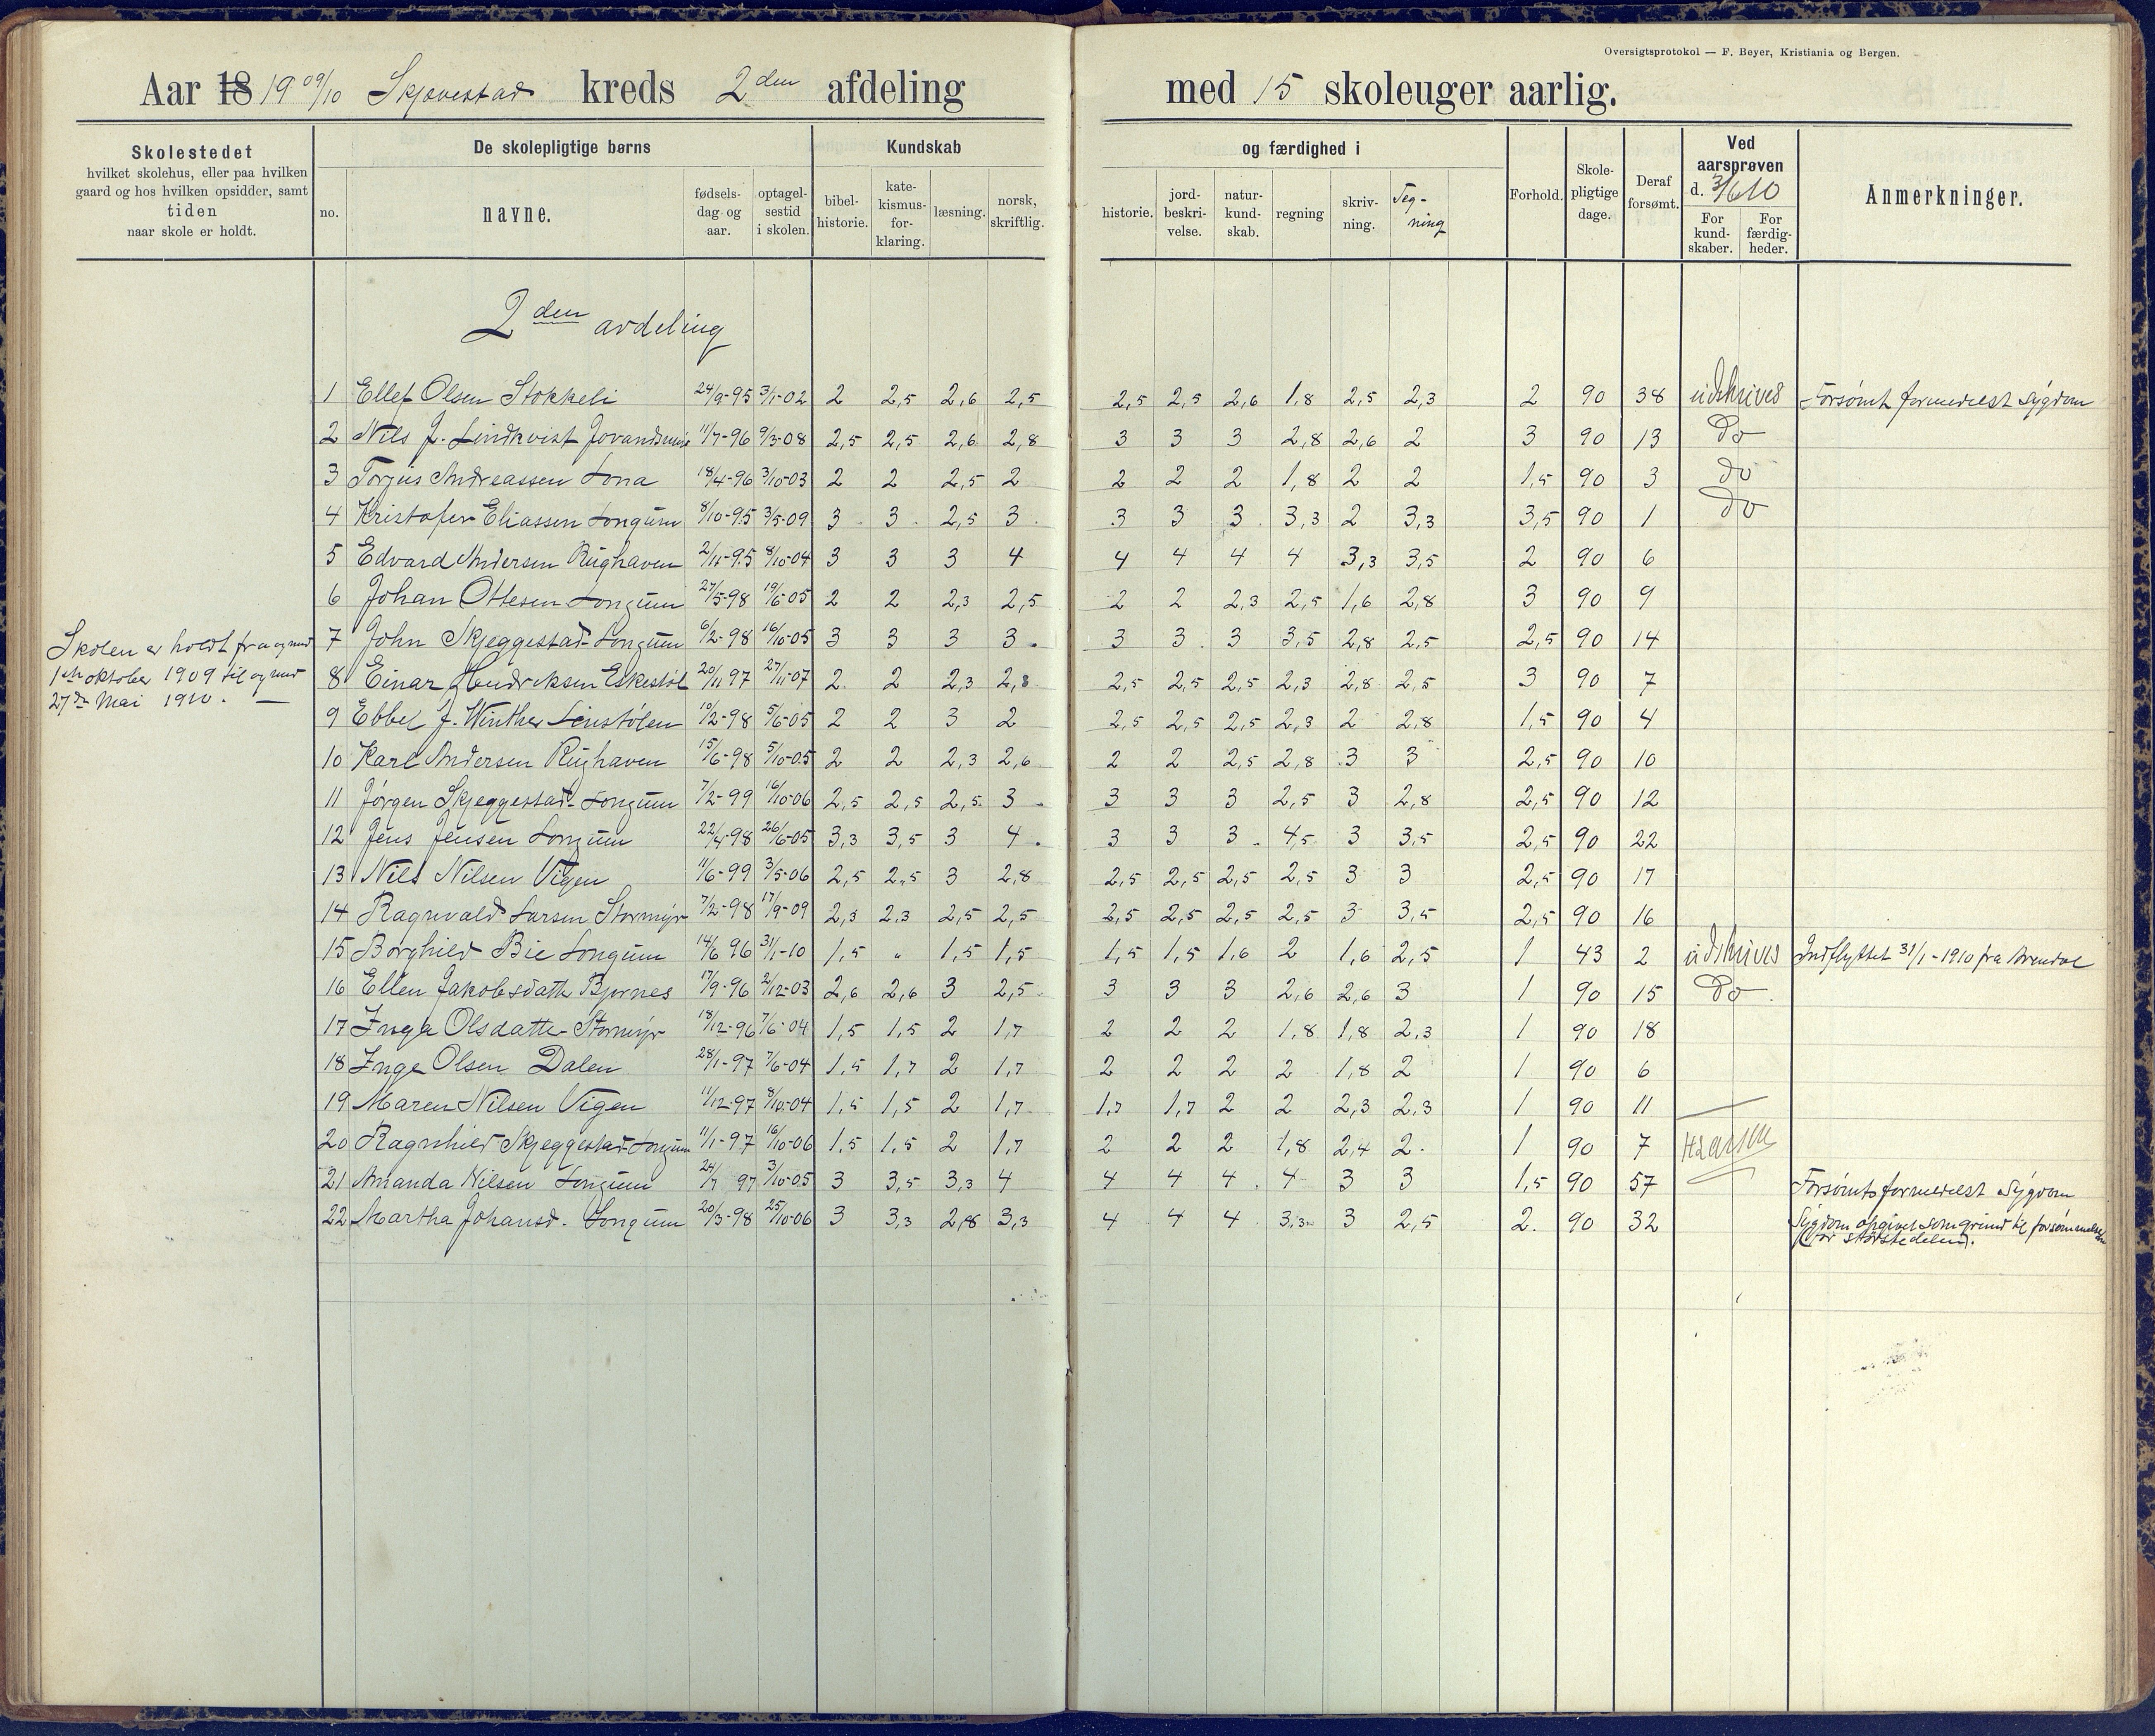 Oversigtsprotokol — F. Beyer, Kristiania og Bergen.
Aar 18 1909/10 Skjævestad kreds 2den afdeling med 15 skoleuger aarlig.
Skolestedet
hvilket skolehus, eller paa hvilken
gaard og hos hvilken opsidder, samt
tiden
naar skole er holdt.
De skolepligtige børns
no. navne. fødsels-dag og aar. optagel-sestid i skolen.
Kundskab og færdighed i
bibel-historie. kate-kismus-for-klaring. læsning. norsk, skriftlig. historie. jord-beskri-velse. natur-kund-skab. regning skriv-ning. Teg-ning
Forhold. Skole-pligtige dage. Deraf forsømt.
Ved aarsprøven d. 3/6 10
For kund-skaber. For færdig-heder.
Anmerkninger.
2den avdeling
1 Ellef Olsen Stokkeli 24/9-95 3/1-02 2 2,5 2,6 2,5 2,5 2,5 2,6 1,8 2,5 2,3 2 90 38 udskrives Forsømt formedelst Sygdom
2 Nils J. Lindkvist 11/7-96 9/3-08 2,5 2,5 2,6 2,8 3 3 3 2,8 2,6 2 3 90 13 Do
3 Torjus Andreassen Lona 18/4-96 3/10-03 2 2 2,5 2 2 2 2 1,8 2 2 1,5 90 3 do
4 Kristofer Eliassen Longum 8/10-95 3/5-09 3 3 2,5 3 3 3 3 3,3 2 3,3 3,5 90 1 do
5 Edvard Andersen Rughaven 2/11-95 8/10-04 3 3 3 4 4 4 4 4 3,3 3,5 2 90 6
6 Johan Ottesen Longum 27/5-98 19/6-05 2 2 2,3 2,5 2 2 2,3 2,5 1,6 2,8 3 90 9
7 John Skjeggestad-Longum 6/2-98 16/10-05 3 3 3 3 3 3 3 3,5 2,8 2,5 2,5 90 14
Skolen er holdt fra og med
1ste oktober 1909 til og med
27de Mai 1910. —
8 Einar Hendriksen Eskestøl 20/11 97 27/11-07 2 2 2,3 2,8 2,5 2,5 2,5 2,3 2,8 2,5 3 90 7
9 Ebbel J. Winther Linstølen 10/2-98 5/6-05 2 2 3 2 2,5 2,5 2,5 2,3 2 2,8 1,5 90 4
10 Karl Andersen Rughaven 15/6-98 5/10-05 2 2 2,3 2,6 2 2 2,5 2,8 3 3 2,5 90 10
11 Jørgen Skjeggestad-Longum 7/2-99 16/10-06 2,5 2,5 2,5 3 3 3 3 2,5 3 2,8 2,5 90 12
12 Jens Jensen Longum 22/4-98 26/6-05 3,3 3,5 3 4 3 3 3 4,5 3 3,5 2,5 90 22
13 Nils Nilsen Vigen 11/6-99 3/5-06 2,5 2,5 3 2,8 2,5 2,5 2,5 2,5 3 3 2,5 90 17
14 Ragnvald Larsen Stormyr 7/2-98 17/9-09 2,3 2,3 2,5 2,5 2,5 2,5 2,5 2,5 3 3,5 2,5 90 16
15 Borghild Bie Longum 14/6 96 31/1-10 1,5 " 1,5 1,5 1,5 1,5 1,6 2 1,6 2,5 1 43 2 udskrives Indflyttet 31/1-1910 fra Arendal
16 Ellen Jakobsdatt. Bjornes 17/9-96 2/12-03 2,6 2,6 3 2,5 3 3 3 2,6 2,6 3 1 90 15 Do
17 Inga Olsdatter Stormyr 18/12-96 7/6-04 1,5 1,5 2 1,7 2 2 2 1,8 1,8 2,3 1 90 18
18 Inge Olsen Dalen 28/1-97 7/6-04 1,5 1,7 2 1,7 2 2 2 2 1,8 2 1 90 6
19 Maren Nilsen Vigen 11/12-97 8/10-04 1,5 1,5 2 1,7 1,7 1,7 2 2 2,3 2,3 1 90 11
20 Ragnhild Skjeggestad-Longum 11/1-97 16/10-06 1,5 1,5 2 1,7 2 2 2 1,8 2,4 2 1 90 7 H Larsen
21 Amanda Nilsen Longum 24/7 97 3/10-05 3 3,5 3,3 4 4 4 4 4 3 3 1,5 90 57 Forsømt formedelst Sygdom
22 Martha Johansd. Longum 20/3-98 25/10-06 3 3,3 2,8 3,3 4 4 4 3,3 3 2,5 2 90 32 Sygdom opgivet som grund til forsømmelsen
(for størstedelen).